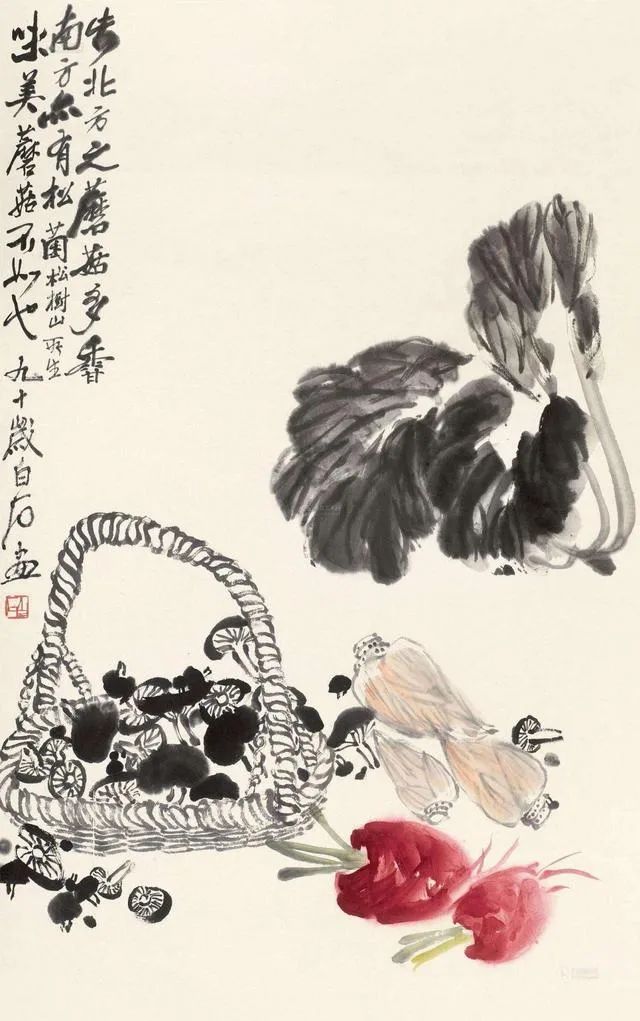 北方之蘑菇多香
南方亦有松菌松樹山所生
味美蘑菇不如也 九十歲白石畫